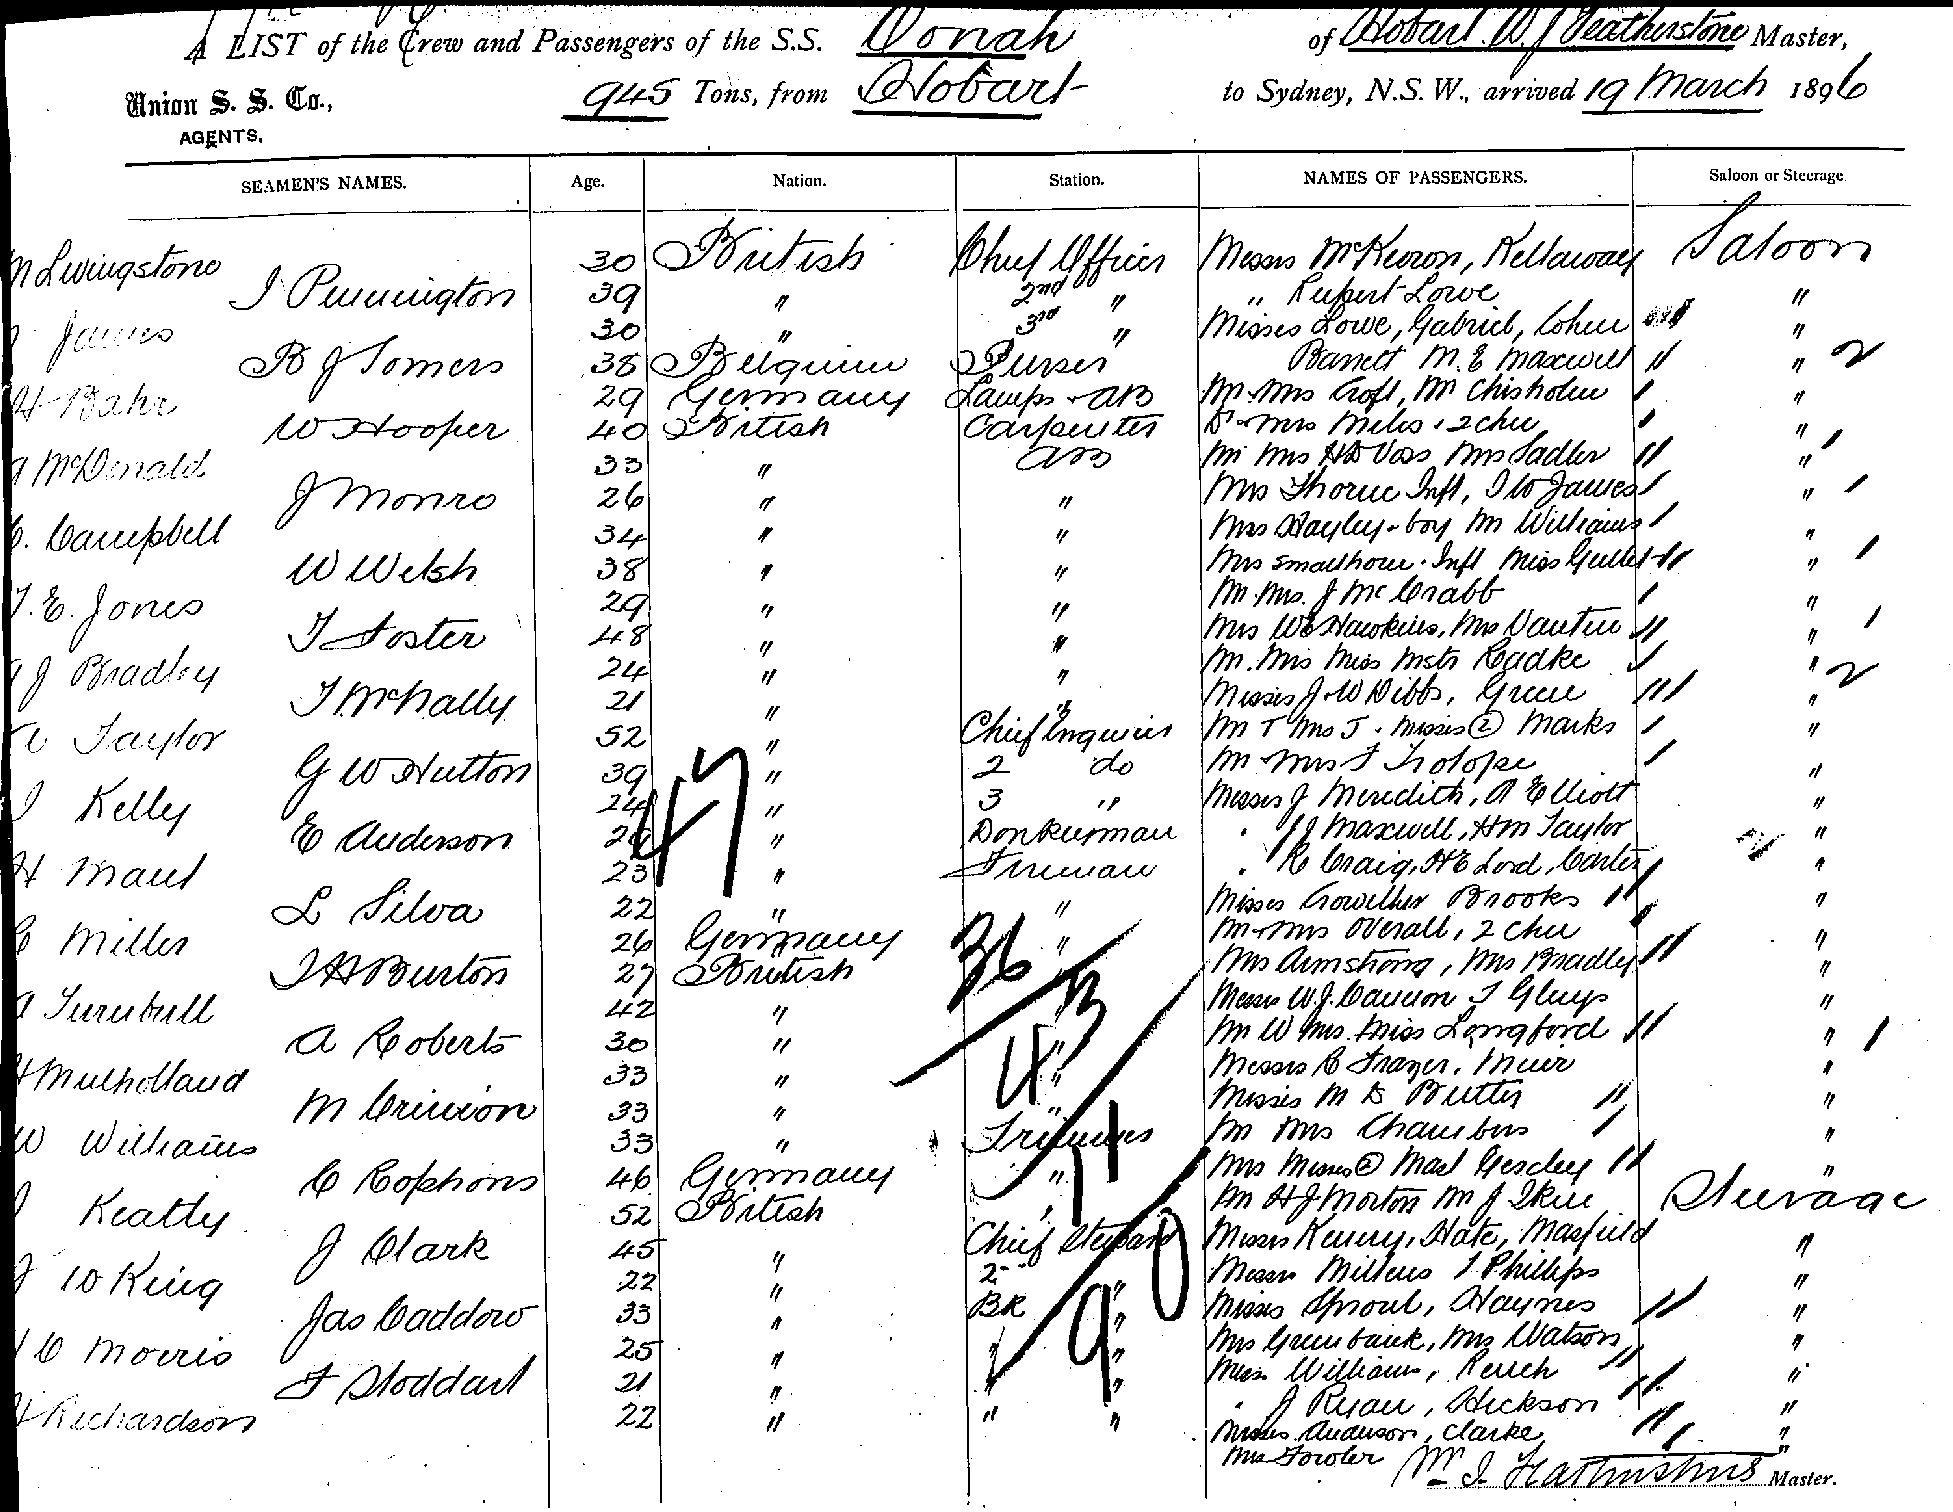 A LIST of the Crew and Passengers of the S.S. Oonah of Hobart. W. J Featherstone Master,
Union S. S. Co., 945 Tons, from Hobart to Sydney, N.S.W., arrived 19 March 1896
AGENTS.
SEAMEN'S NAMES. Age. Nation. Station. NAMES OF PASSENGERS. Saloon or Steerage
M Livingstone 30 British Chief Officer Messrs McKeron, Kellaway Saloon
J Pennington 39 " 2nd " " Rupert Lowe "
James 30 " 3rd " Misses Lowe, Gabriel, Cohen "
R J Somers 38 Belgium Purser Barrett M. E Maxwell " 2
H Bahr 29 Germany Lamps & AB Mr Mrs Croft, Mr Chisholm "
W Hooper 40 British Carpenter Dr & Mrs Miles & 2 chn "
A McDonald 33 " AB Mr Mrs HD Voss Mrs Sadler "
J Monro 26 " " Mrs Thorne Inft, I W James "
C. Campbell 34 " " Mrs Hayley & boy Mr Williams "
W Welsh 38 " " Mrs Smalhorn & Inft Miss Gullet "
T. E. Jones 29 " " Mr Mrs. J McCrabb "
T Foster 48 " " Mrs WE Hawkins, Mrs Vautin "
A J Bradley 24 " " Mr. Mrs Miss Mstr Radke " 2
T McNally 21 " " Messrs J. W Dibbs, Green "
A Taylor 52 " Chief Engineer Mr T Mrs J. Misses (2) Marks "
G W Hutton 39 " 2 do Mr Mrs F Trolope "
J Kelly 24 " 3 " Messrs J Meredith, A Elliott "
E Anderson 29 " Donkeyman " J Maxwell, HM Taylor "
H Maul 23 " Fireman " R Craig, HE Lord, Carter "
L Silva 22 " " Misses Crowther Brooks "
C Miller 26 Germany " Mr & Mrs Overall, 2 chn "
J H Burton 27 British Mrs Armstrong, Mrs Bradley "
A Turnbull 42 " Messrs W. J. Cameron T Glugs "
A Roberts 30 " Mr W Mrs. Miss Longford "
H Mulholland 33 " " Messrs C Frazer, Meier "
M Crinion 33 " " Misses M D Butler "
W Williams 33 " Trimmers Mr Mrs Chambers "
C Cophons 46 Germany " Mrs Misses (2) Mast "
J Keatty 52 British " Mr H J Morton Mr J Steerage
J Clark 45 " Chief Steward Messrs Kenny, Hate, Masfield "
J W King 22 " 2 " Messrs Millens T Phillips "
Jas Caddow 33 " BR " Misses Sproul, Haynes "
C Morris 25 " " " Mrs Greenbank, Mrs Watson "
F Stoddart 21 " " " Miss Williams, "
H Richardson 22 " " " " J Ryan, Hickson "
Misses Anderson, Clarke "
Mrs Fowler
47
36
43
71
90
Wm J. Featherstone Master.